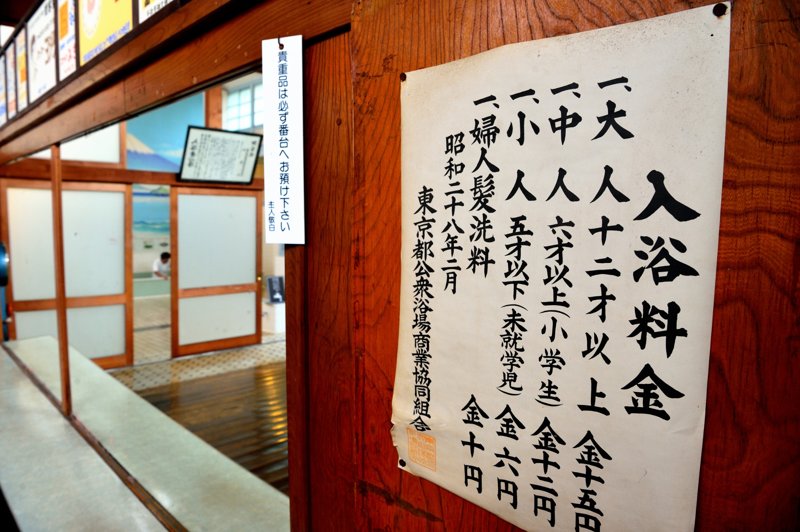 入浴料金
一、大人 十二才以上 金十五円
一、中人 六才以上(小学生) 金十二円
一、小人 五才以下(未就学児) 金六円
一、婦人髪洗料 金十円
昭和二十八年二月
東京都公衆浴場商業協同組合
貴重品は必ず番台へお預け下さい
主人敬白